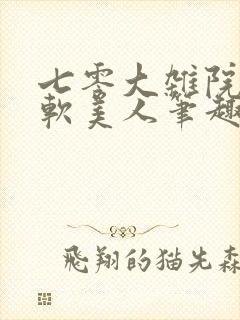 七零大雜院
軟美人筆趣
飛翔的猫先森